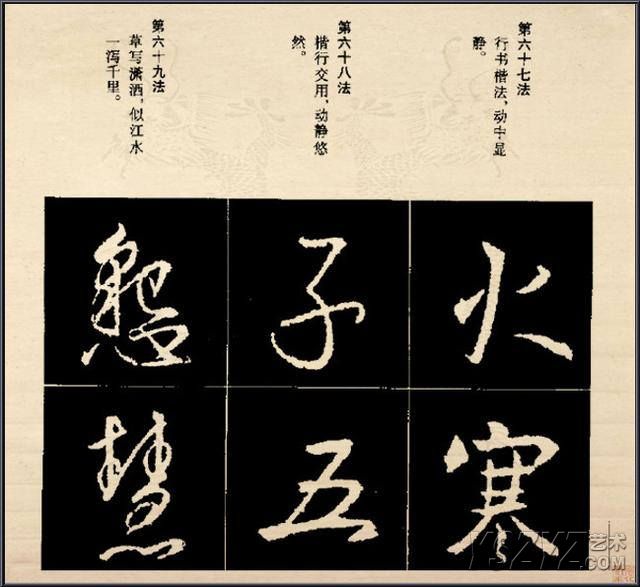 第六十七法
行书楷法,动中显
静。
火
寒
第六十八法
楷行交用,动静悠
然。
子
五
第六十九法
草写潇洒,似江水
一泻千里。
慧
YSZYZ艺术
.COM